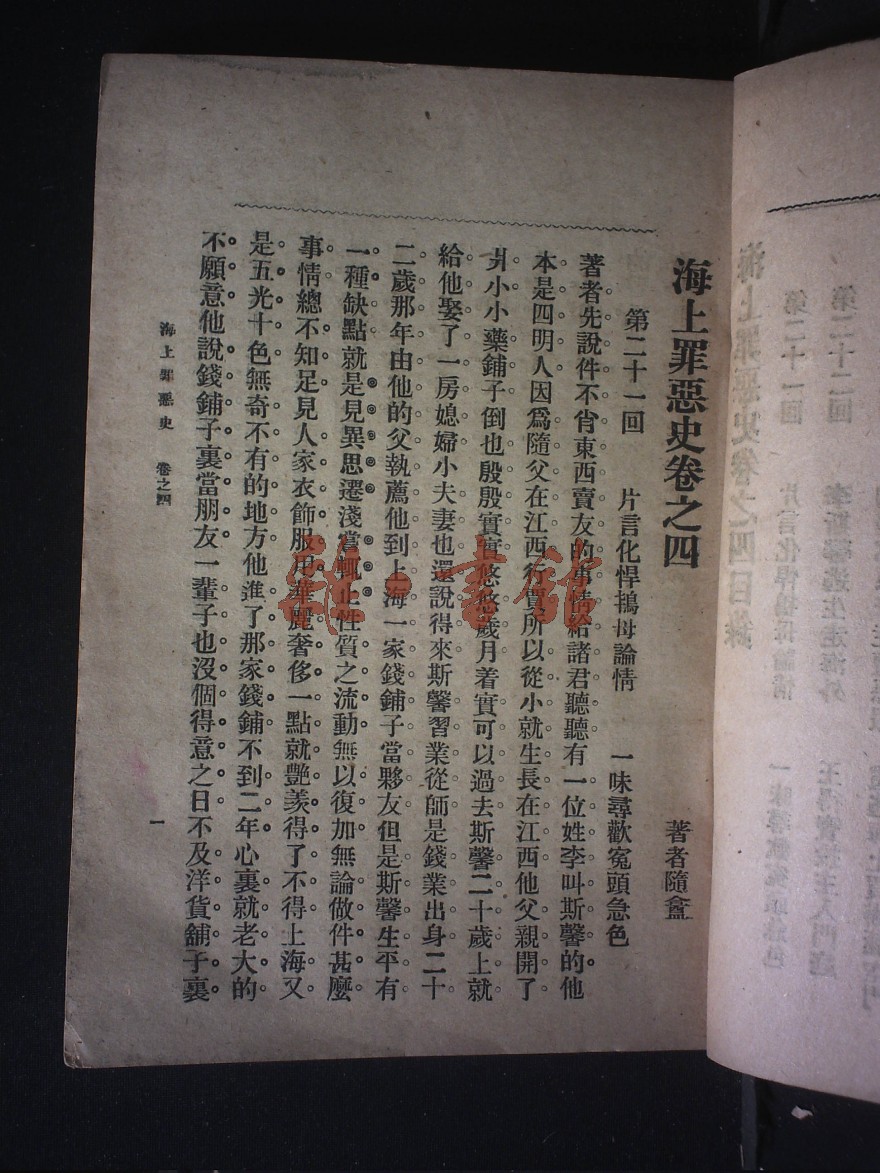 海上罪惡史卷之四
著者隨盦
第二十一回　片言化悍鴇母論情　一味尋歡冤頭急色
著者先說件不肯東西賣友的事情給諸君聽聽有一位姓李叫斯馨的他
本是四明人因爲隨父在江西行賈所以從小就生長在江西他父親開了
爿小小藥鋪子倒也殷殷實實悠悠歲月着實可以過去斯馨二十歲上就
給他娶了一房媳婦小夫妻也還說得來斯馨習業從師是錢業出身二十
二歲那年由他的父執薦他到上海一家錢鋪子當夥友但是斯馨生平有
一種缺點就是見異思遷淺嘗輒止性質之流動無以復加無論做件甚麼
事情總不知足見人家衣飾服用華麗奢侈一點就艷羨得了不得上海又
是五光十色無奇不有的地方他進了那家錢鋪不到二年心裏就老大的
不願意他說錢鋪子裏當朋友一輩子也沒個得意之日不及洋貨舖子裏
海上罪惡史　卷之四
一